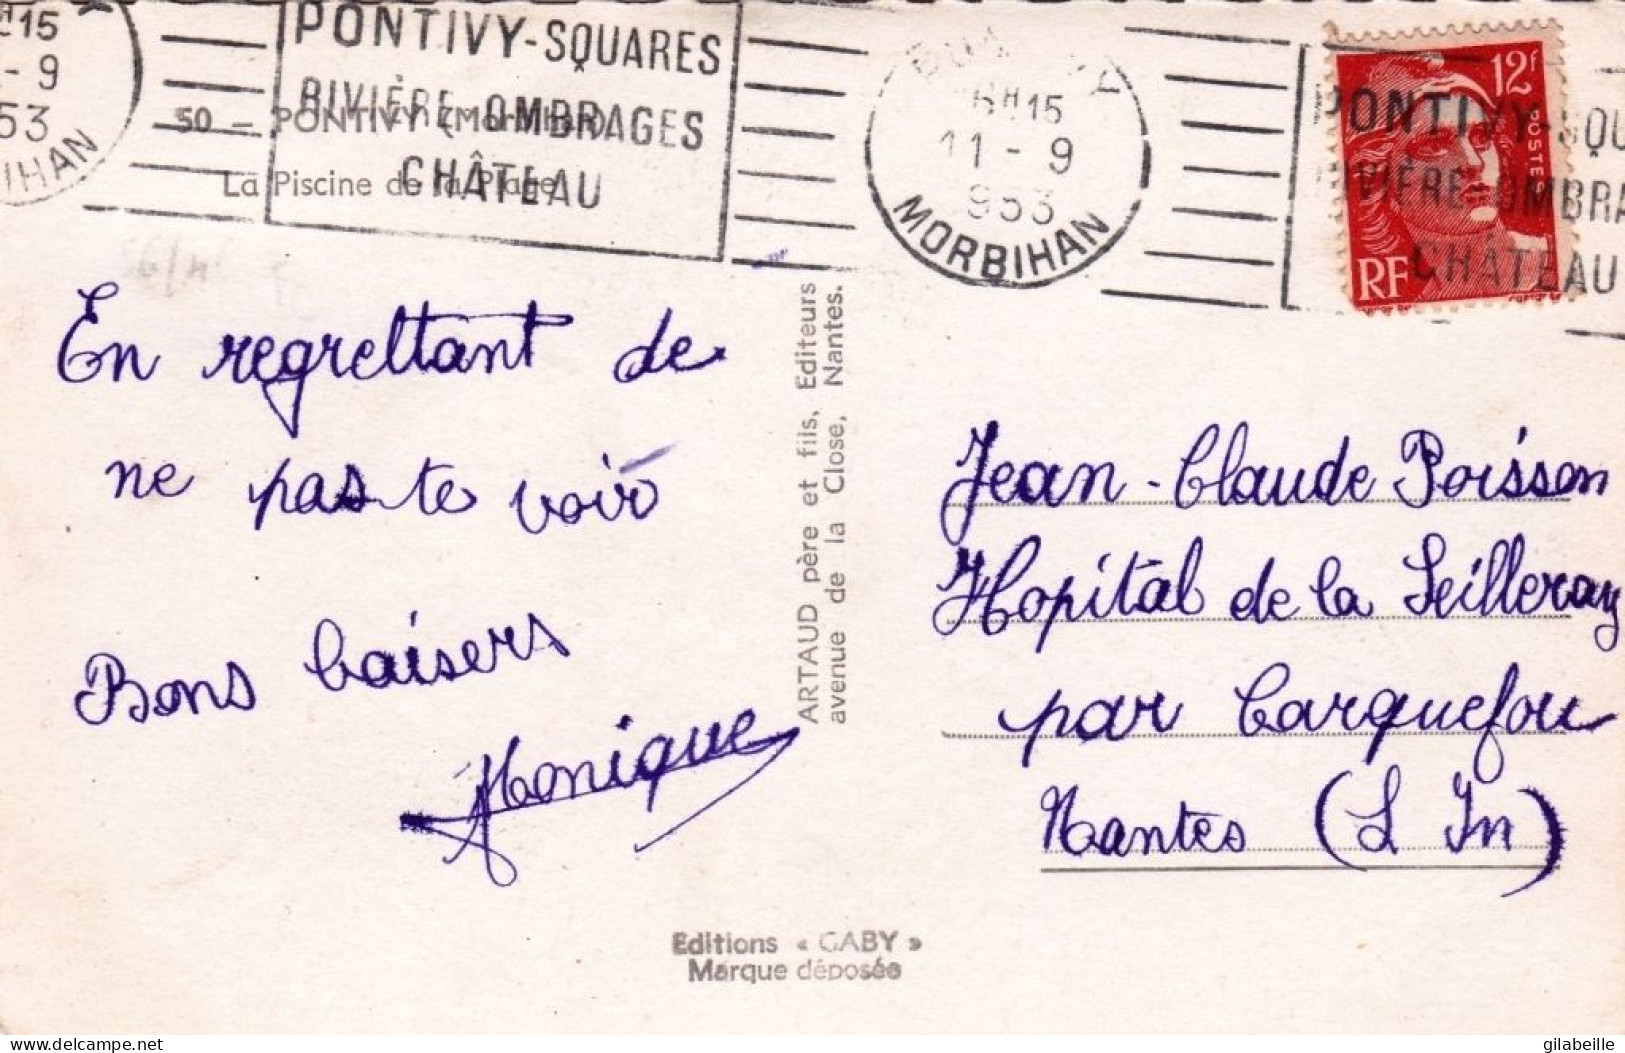 15
- 9
53
IHAN
PONTIVY-SQUARES
RIVIÈRE OMBRAGES
CHÂTEAU
50 - PONTIVY (Morbihan)
La Piscine de la Plage
15
11 - 9
953
MORBIHAN
12F
POSTES
RF
PONTIVY-SQU
RIVIÈRE OMBRA
CHÂTEAU
En regrettant de
ne pas te voir
Bons baisers
Monique
ARTAUD père et fils, Editeurs
avenue de la Close, Nantes.
Jean-Claude Poisson
Hopital de la Seilleray
par Carquefou
Nantes (L In)
Editions « GABY »
Marque déposée
Delcampe.net
gilabeille